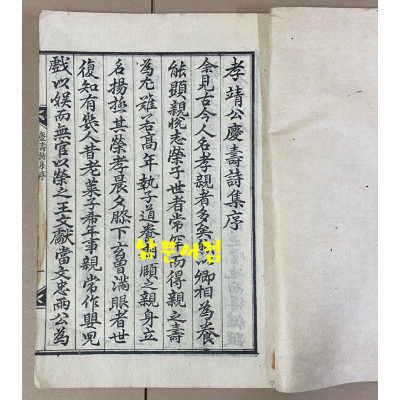 孝靖公慶壽詩集序
余見古今人名孝親者多矣以卿相為養
能顯親悅志榮于世者常罕而得親之壽
為尤難若高年執子道養顯之親身立
名揚極其榮孝晨夕膝下言曾滿眼者世
復知有幾人昔老萊子希年事親常作嬰児
戲以娛而無官以榮之王文獻當文忠兩公為
慶壽詩集序
남문서점